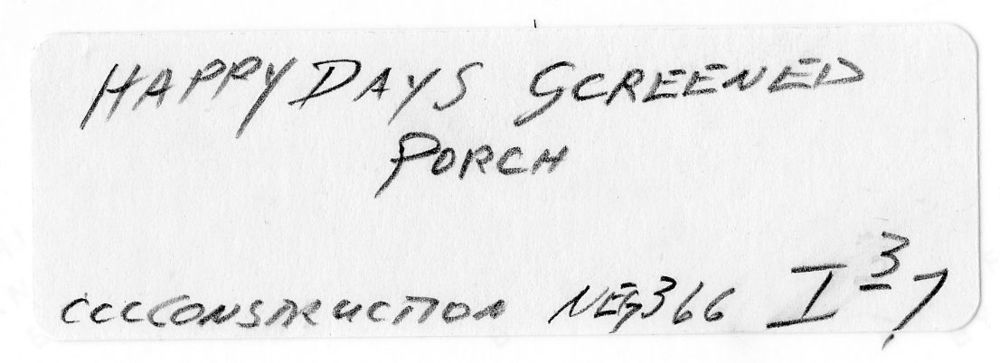 HAPPY DAYS SCREENED
PORCH
CCC CONSTRUCTION NEG 366 I 3-7